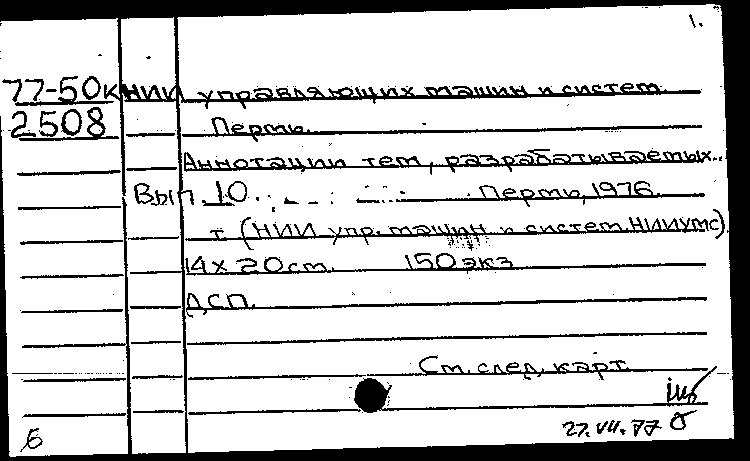 1.
77-50к НИИ управляющих машин и систем.
2508 Пермь.
Аннотации тем, разрабатываемых..
Вып. 10. Пермь, 1976.
т (НИИ упр. машин и систем. НИИУМС)
14 х 20 см. 150 экз
ДСП.
См. след. карт.
27.VII.77
Б